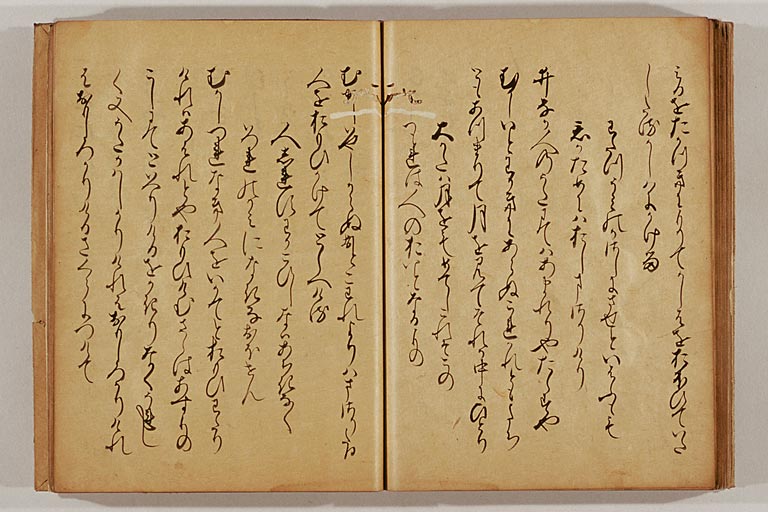 みるをたかつきにもりてかしはをおほひていた
したるかしはにかけり
わたつみのかさしにさすといはふも
君かためにはおしまさりけり
井なか人のうたにてはあまれりやたらすや
むかしいとわかきにはあらぬこれかれともたち
ともあつまりて月を見てそれか中にひとり
大かたは月をもめてしこれそこの
つもれは人のおいとなるもの
むかしいやしからぬおとこわれよりはまさりたる
人をおもひかけてとしへける
人しれすわれこひしなはあちきなく
いつれのかみになきなおほせん
むかしつれなき人をいかてとおもひわたり
けれはあはれとやおもひけむさらはあすもの
こしにてもといへりけるをかきりなくうれし
く又うたかはしかりけれはおもしろかりけれ
はおもしろかりけるさくらにつけて